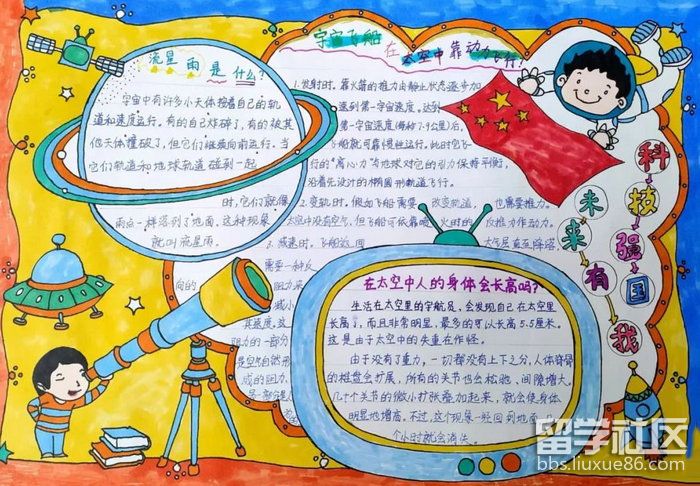 流星雨是什么?
宇宙中有许多小天体按着自己的轨
道和速度运行。有的自己炸碎了,有的被其
他天体撞破了,但它们继续向前运行。当
它们轨道和地球轨道碰到一起
时,它们就像
雨点一样落到了地面,这种现象
就叫流星雨。
宇宙飞船在太空中靠动力飞行!
1.发射时,靠火箭的推力由静止状态逐步加
速到第一宇宙速度,达到
第一宇宙速度(每秒7.9公里)后,
飞船就可靠惯性运行。此时它飞
行的"离心力"与地球对它的引力保持平衡,
沿着先设计的椭圆形轨道飞行。
2.变轨时,假如飞船需要改变轨道,也需要推力。
太空中没有空气,但飞船可依靠喷火时的反推力作动力。
3.减速时,飞船返回大气层直至降落,
需要一种反
向的阻力来
减小
其速度,这
阻力的一部分
是空气自然形
成的回力,
另一部分是
在太空中人的身体会长高吗?
生活在太空里的宇航员,会发现自己在太空里
长高了,而且非常明显,最多的可以长高5.5厘米。
这是由于太空中的失重在作怪。
由于没有了重力,一切都没有上下之分,人体脊骨
的椎盘会扩展,所有的关节也会松弛、间隙增大。
几十个关节的微小扩张叠加起来,就会使身体
明显地增高,不过,这个现象一经回到地面
个小时就会消失。
科技强国
未来有我
留学社区
bbs.liuxue86.com